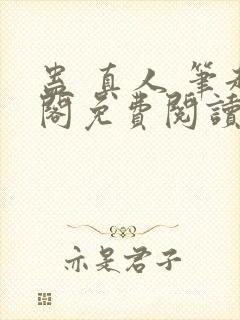 蛊真人 筆趣
閣免費閱讀
亦是君子